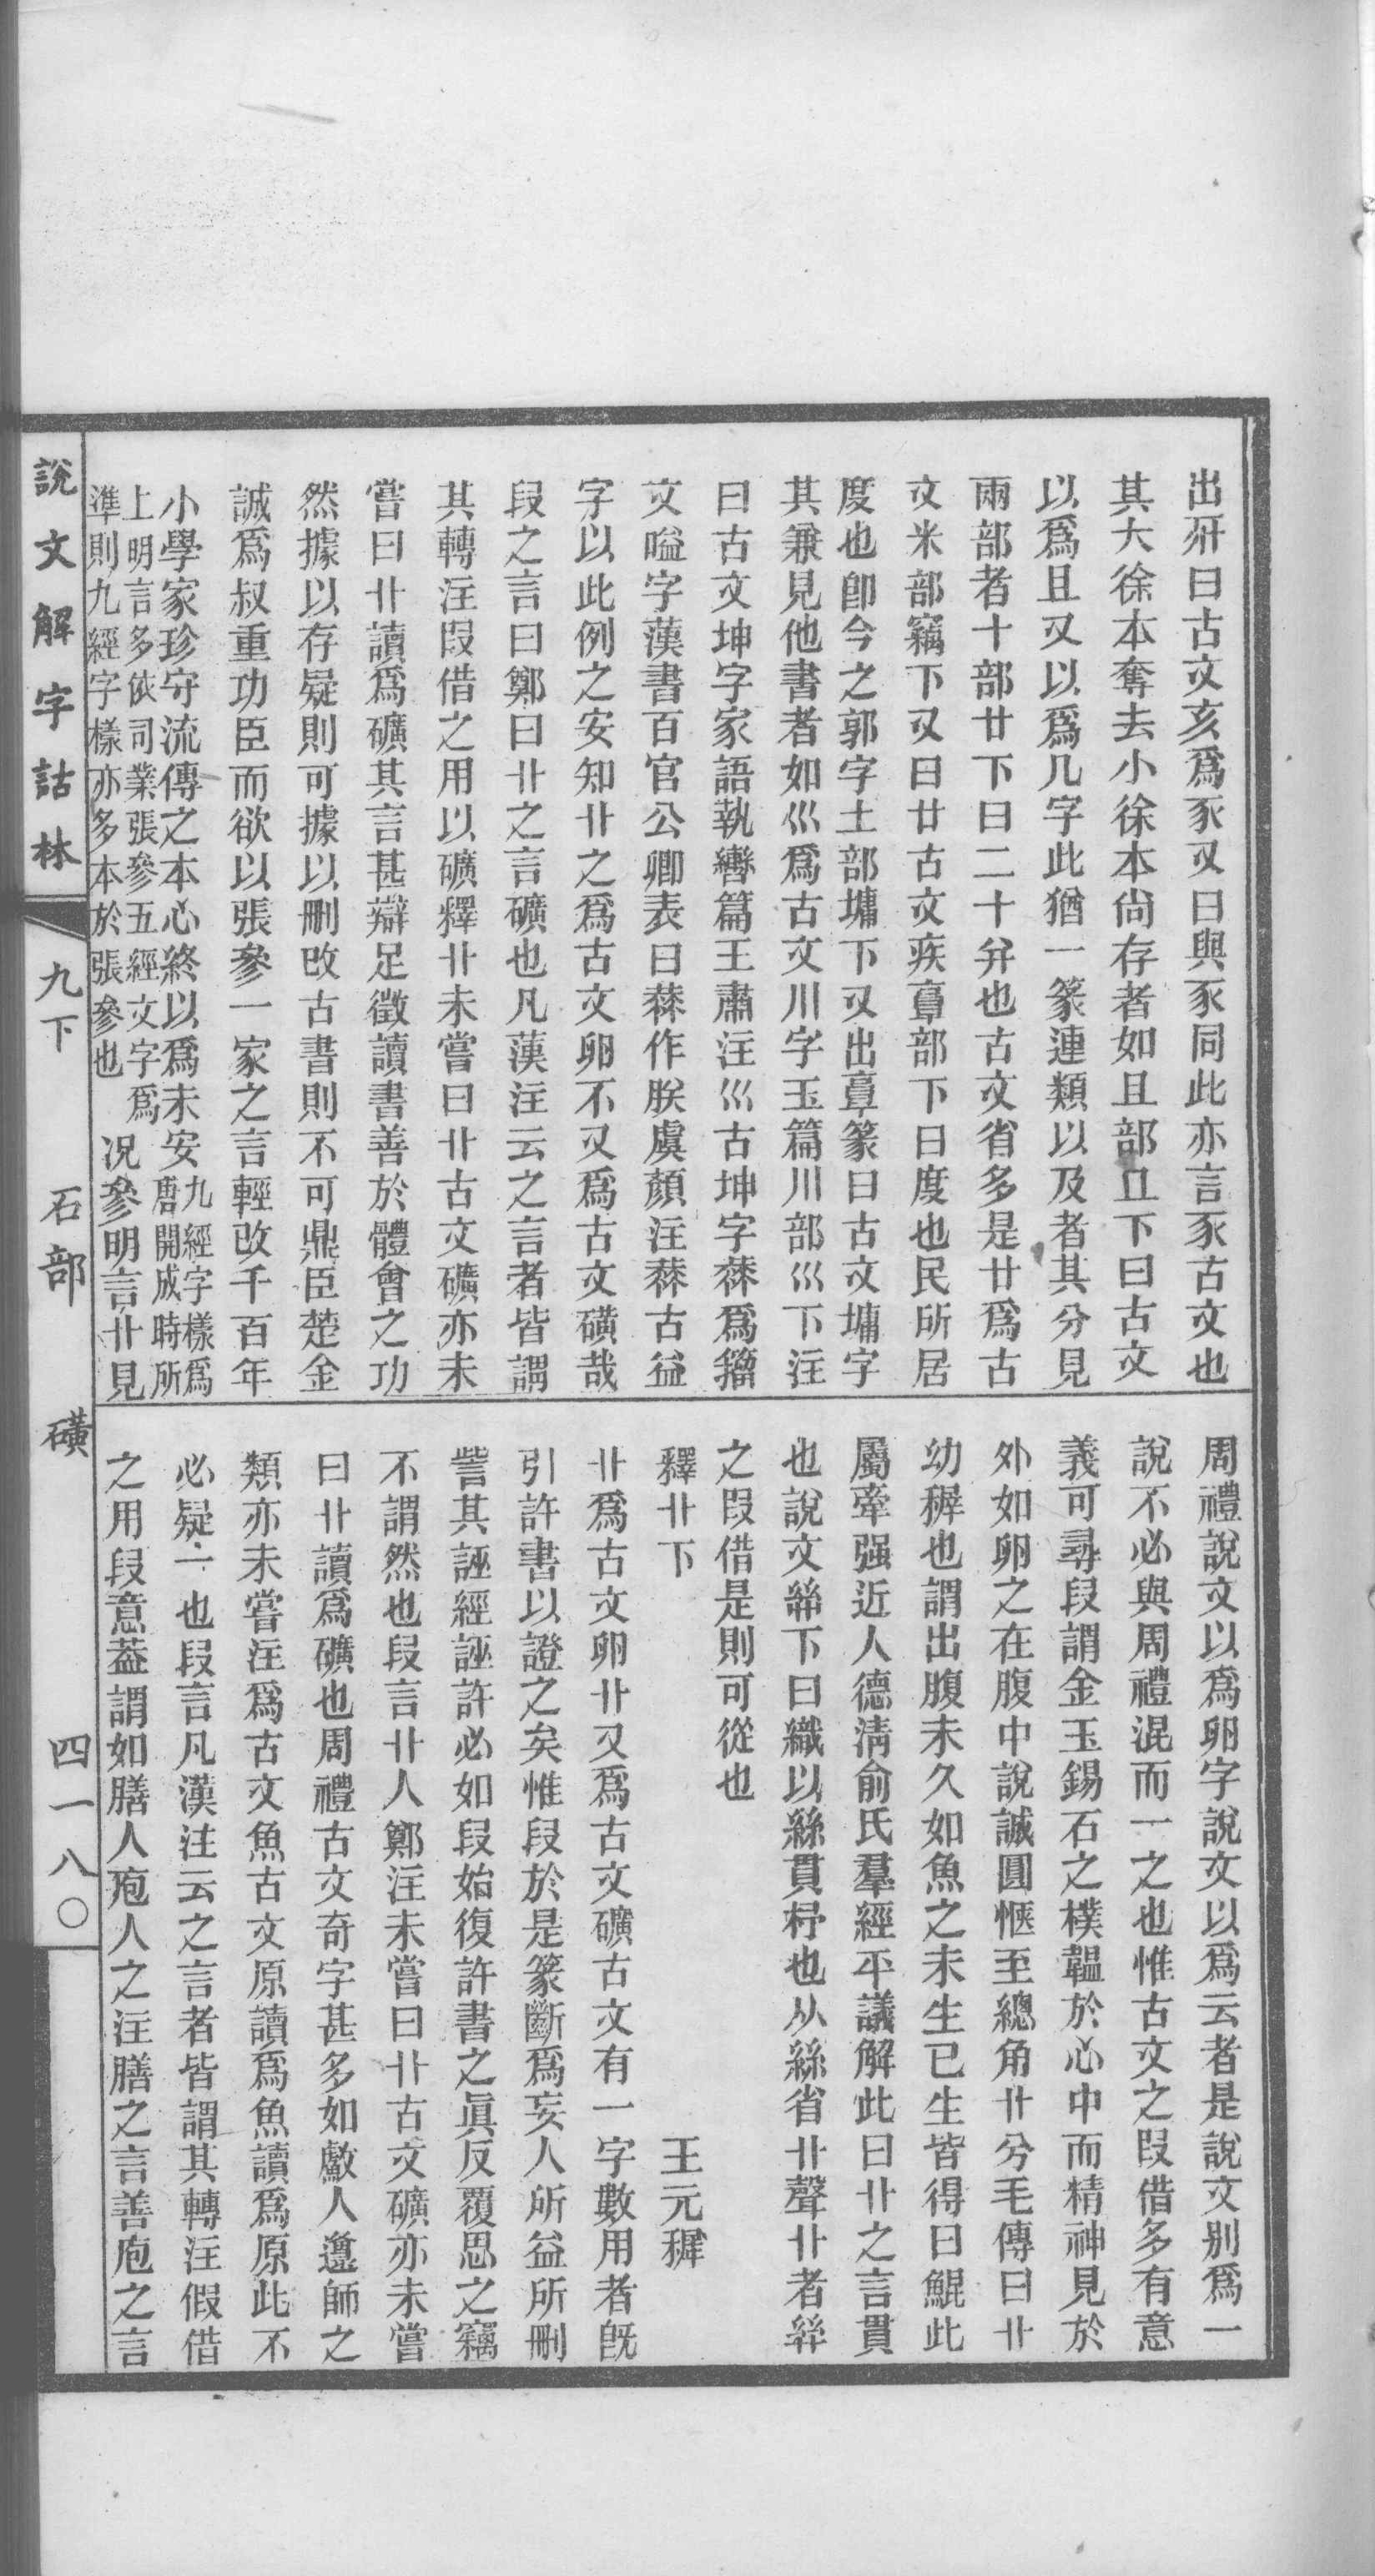 出𠀬曰古文亥爲豕又曰與豕同此亦言豕古文也
其大徐本奪去小徐本尙存者如且部𠀃下曰古文
以爲且又以爲几字此猶一篆連類以及者其分見
兩部者十部廿下曰二十幷也古文省多是廿爲古
文米部竊下又曰廿古文疾𩫖部下曰度也民所居
度也卽今之郭字土部墉下又出𩫖篆曰古文墉字
其兼見他書者如巛爲古文川字玉篇川部巛下注
曰古文坤字家語執轡篇王肅注巛古坤字𦵯爲籀
文嗌字漢書百官公卿表曰𦵯作朕虞顏注𦵯古益
字以此例之安知卝之爲古文卵不又爲古文磺哉
段之言曰鄭曰卝之言礦也凡漢注云之言者皆謂
其轉注叚借之用以礦釋卝未嘗曰卝古文礦亦未
嘗曰卝讀爲礦其言甚辯足徵讀書善於體會之功
然據以存疑則可據以刪改古書則不可鼎臣楚金
誠爲叔重功臣而欲以張參一家之言輕改千百年
小學家珍守流傳之本心終以爲未安九經字樣爲唐開成時所
上明言多依司業張參五經文字爲準則九經字樣亦多本於張參也況參明言卝見
周禮說文以爲卵字說文以爲云者是說文别爲一
說不必與周禮混而一之也惟古文之叚借多有意
義可尋段謂金玉錫石之樸韞於心中而精神見於
外如卵之在腹中說誠圓愜至總角卝兮毛傳曰卝
幼穉也謂出腹未久如魚之未生已生皆得曰鯤此
屬牽强近人德淸俞氏羣經平議解此曰卝之言貫
也說文𢇁下曰織以絲貫杼也从絲省卝聲卝者𢇁
之叚借是則可從也
釋卝下　王元穉
卝爲古文卵卝又爲古文礦古文有一字數用者旣
引許書以證之矣惟段於是篆斷爲妄人所益所刪
訾其誣經誣許必如段始復許書之眞反覆思之竊
不謂然也段言卝人鄭注未嘗曰卝古文礦亦未嘗
曰卝讀爲礦也周禮古文奇字甚多如𩼪人邍師之
類亦未嘗注爲古文魚古文原讀爲魚讀爲原此不
必疑一也段言凡漢注云之言者皆謂其轉注假借
之用段意葢謂如膳人庖人之注膳之言善庖之言
說文解字詁林　九下　石部　磺　四一八〇